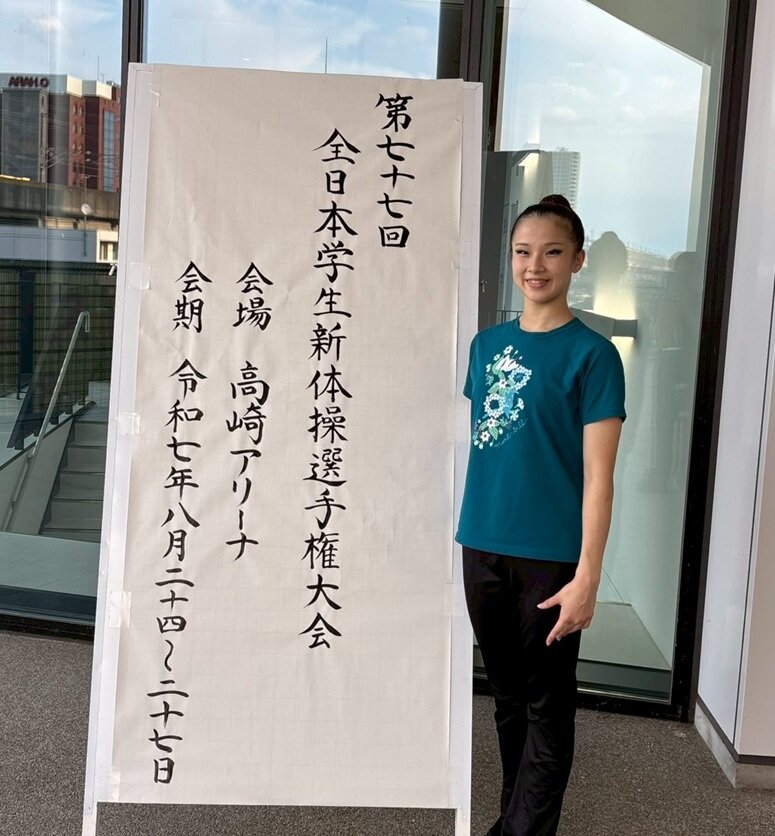 第七十七回
全日本学生新体操選手権大会
会場 高崎アリーナ
会期 令和七年八月二十四～二十七日